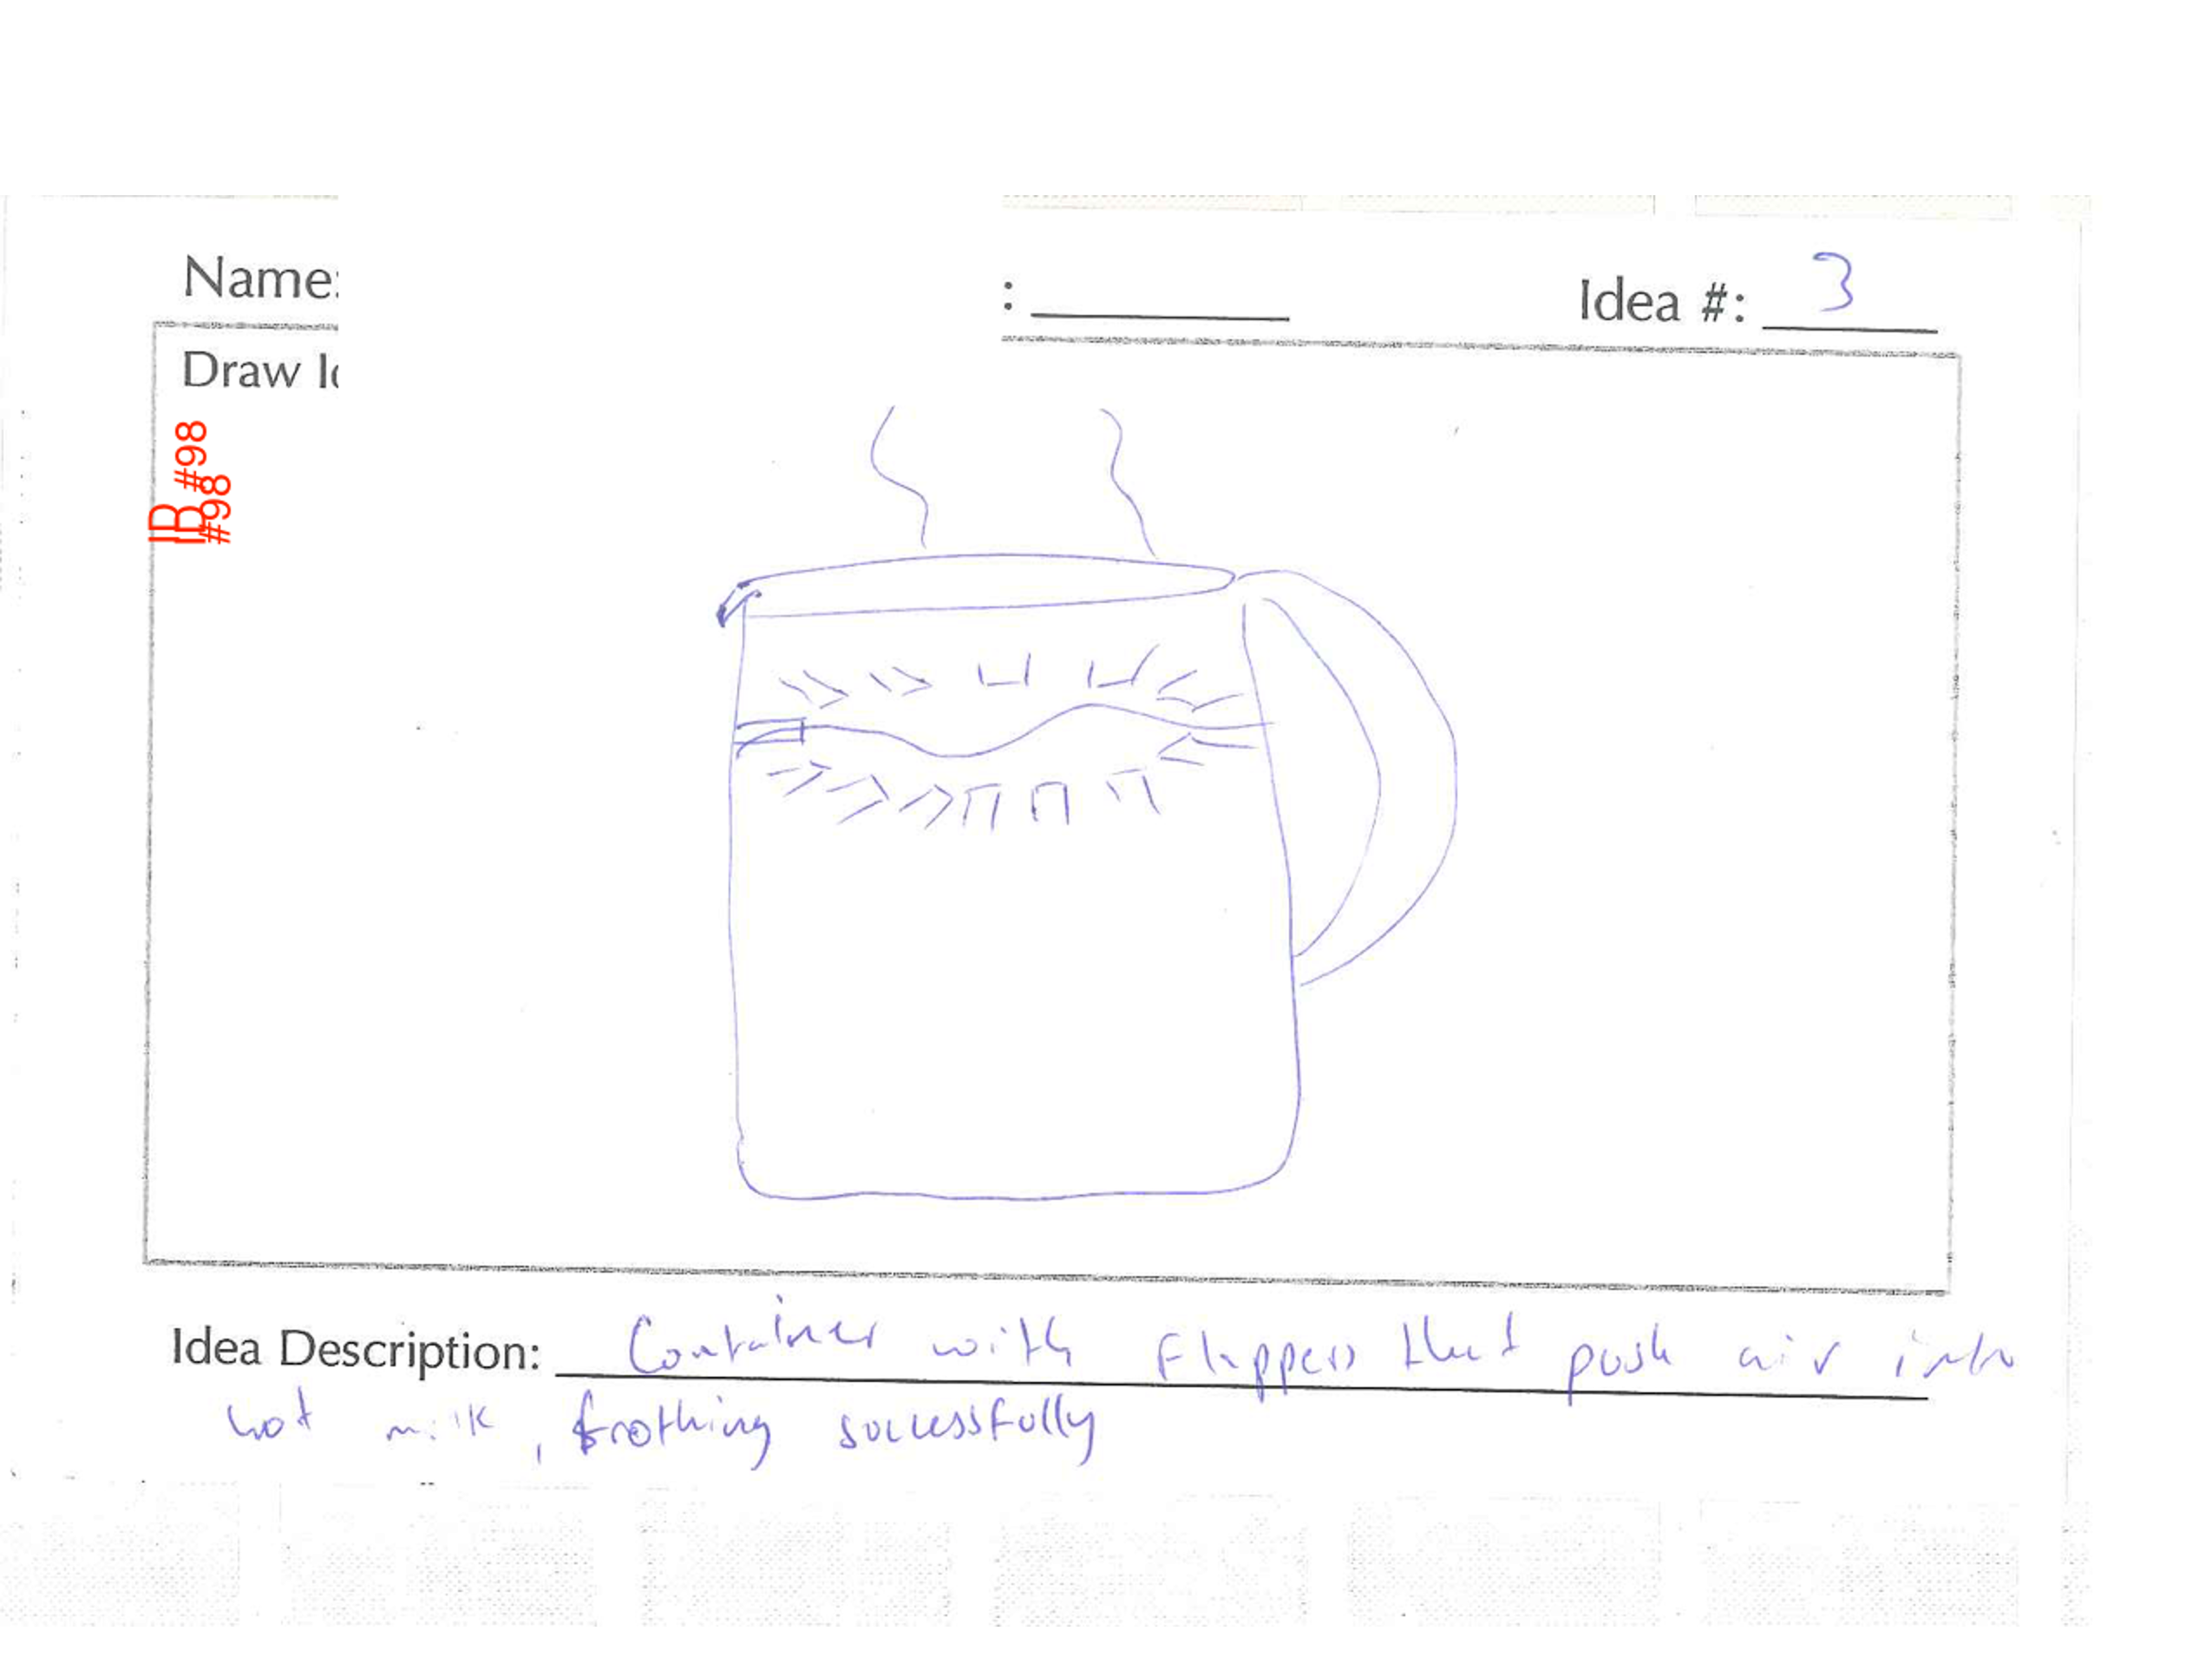 Name:
: Idea #: 3
Draw Id
ID #98
ID #98
Idea Description: Container with Flippers that push air into
hot milk, frothing successfully